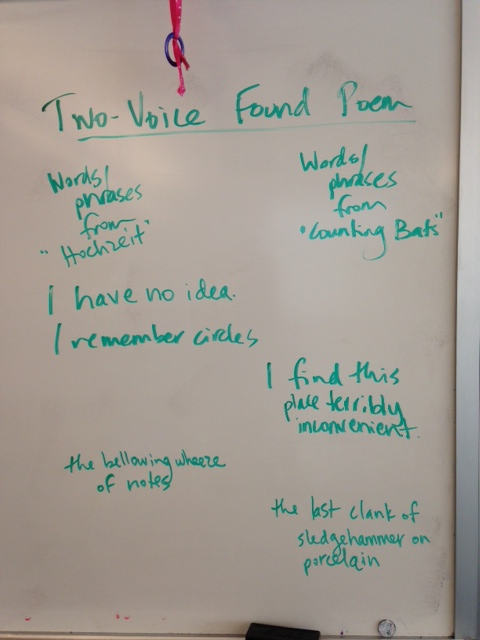 Two-Voice Found Poem
Words/
phrases
from
"Hochzeit"
Words/
phrases
from
"Counting Bats"
I have no idea.
I remember circles
I find this
place terribly
inconvenient.
the bellowing wheeze
of notes
the last clank of
sledgehammer on
porcelain